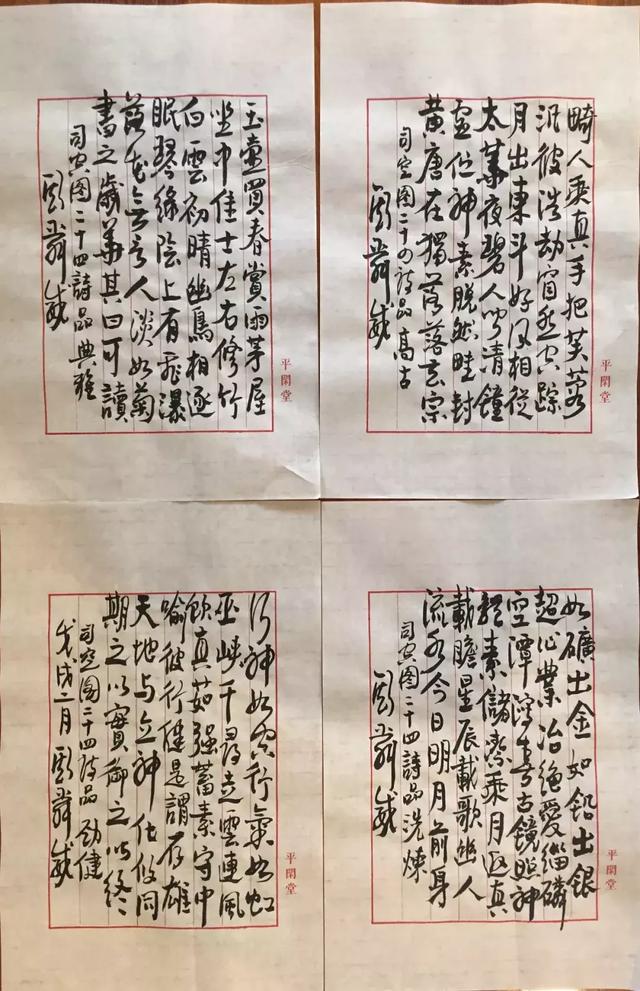 畸人乘真手把芙蓉
汎彼浩劫窅然空踪
月出東斗好风相從
太華夜碧人闻清鐘
虚伫神素脱然畦封
黄唐在獨落落玄宗
司空图二十四诗品高古
平閑堂
玉壺買春賞雨茅屋
坐中佳士左右修竹
白雲初晴幽鳥相逐
眠琴綠陰上有飛瀑
落花無言人淡如菊
書之歲華其曰可讀
司空图二十四詩品典雅
平閑堂
如礦出金如鉛出銀
超心冶絕愛緇磷
空潭瀉春古鏡照神
體素儲潔乘月返真
載瞻星辰載歌幽人
流水今日明月前身
司空图二十四詩品洗煉
平閑堂
行神如空行氣如虹
巫峡千尋走雲連風
飲真茹强蓄素守中
喻彼行健是謂存雄
天地与立神化攸同
期之以實御之以終
司空图二十四诗品劲健
戊戌二月
平閑堂